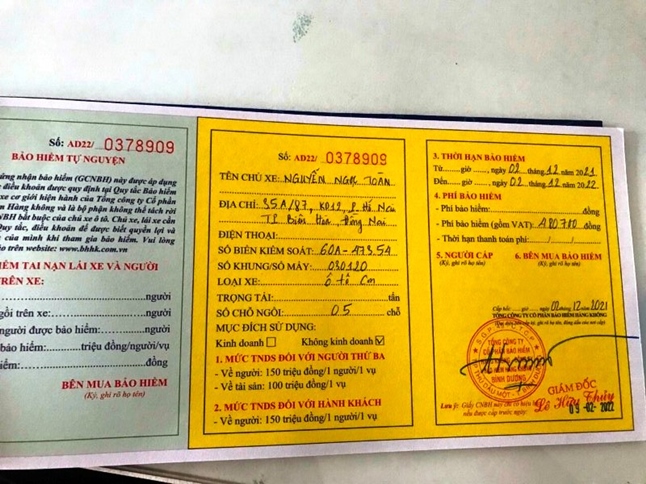 Số: AD22/ 0378909
BẢO HIỂM TỰ NGUYỆN
ứng nhận bảo hiểm (GCNBH) này được áp dụng
điều khoản được quy định tại Quy tắc Bảo hiểm
xe cơ giới hiện hành của Tổng công ty Cổ phần
Hàng Không và là bộ phận không thể tách rời
NBH bắt buộc của chủ xe ô tô. Chủ xe, lái xe cần
Quy tắc, điều khoản để được biết quyền lợi và
của mình khi tham gia bảo hiểm. Vui lòng
trên website: www.bhhk.com.vn
IỂM TAI NẠN LÁI XE VÀ NGƯỜI
TRÊN XE:
người
gồi trên xe: người
người được bảo hiểm: người
bảo hiểm: triệu đồng/người/vụ
iểm: đồng
BÊN MUA BẢO HIỂM
(Ký, ghi rõ họ tên)
Số: AD22/ 0378909
TÊN CHỦ XE: NGUYỄN NGỌC TOÀN
ĐỊA CHỈ: 35A/87, KD12, P. Hố Nai
TP Biên Hòa, Đồng Nai
ĐIỆN THOẠI:
SỐ BIỂN KIỂM SOÁT: 60A-473.54
SỐ KHUNG/SỐ MÁY: 030120
LOẠI XE: Ô tô con
TRỌNG TẢI: tấn
SỐ CHỖ NGỒI: 05 chỗ
MỤC ĐÍCH SỬ DỤNG:
Kinh doanh Không kinh doanh
1. MỨC TNDS ĐỐI VỚI NGƯỜI THỨ BA
- Về người: 150 triệu đồng/1 người/1 vụ
- Về tài sản: 100 triệu đồng/1 vụ
2. MỨC TNDS ĐỐI VỚI HÀNH KHÁCH
- Về người: 150 triệu đồng/1 người/1 vụ
3. THỜI HẠN BẢO HIỂM
Từ giờ , ngày 02 tháng 12 năm 2021
Đến giờ , ngày 02 tháng 12 năm 2022
4. PHÍ BẢO HIỂM
- Phí bảo hiểm: đồng
- Phí bảo hiểm (gồm VAT): 480.700 đồng
- Thời hạn thanh toán phí:
5. NGƯỜI CẤP 6. BÊN MUA BẢO HIỂM
(Ký, ghi rõ họ tên) (Ký, ghi rõ họ tên)
Cấp hồi: giờ ngày 02/12/2021
TỔNG CÔNG TY CỔ PHẦN BẢO HIỂM HÀNG KHÔNG
TỔNG CÔNG TY
CỔ PHẦN BẢO HIỂM
HÀNG KHÔNG
BÌNH DƯƠNG
GIÁM ĐỐC
Lê Hữu Thủy
Lưu ý: Giấy CNBH
09-02-2022
nếu được cấp trước ngày: